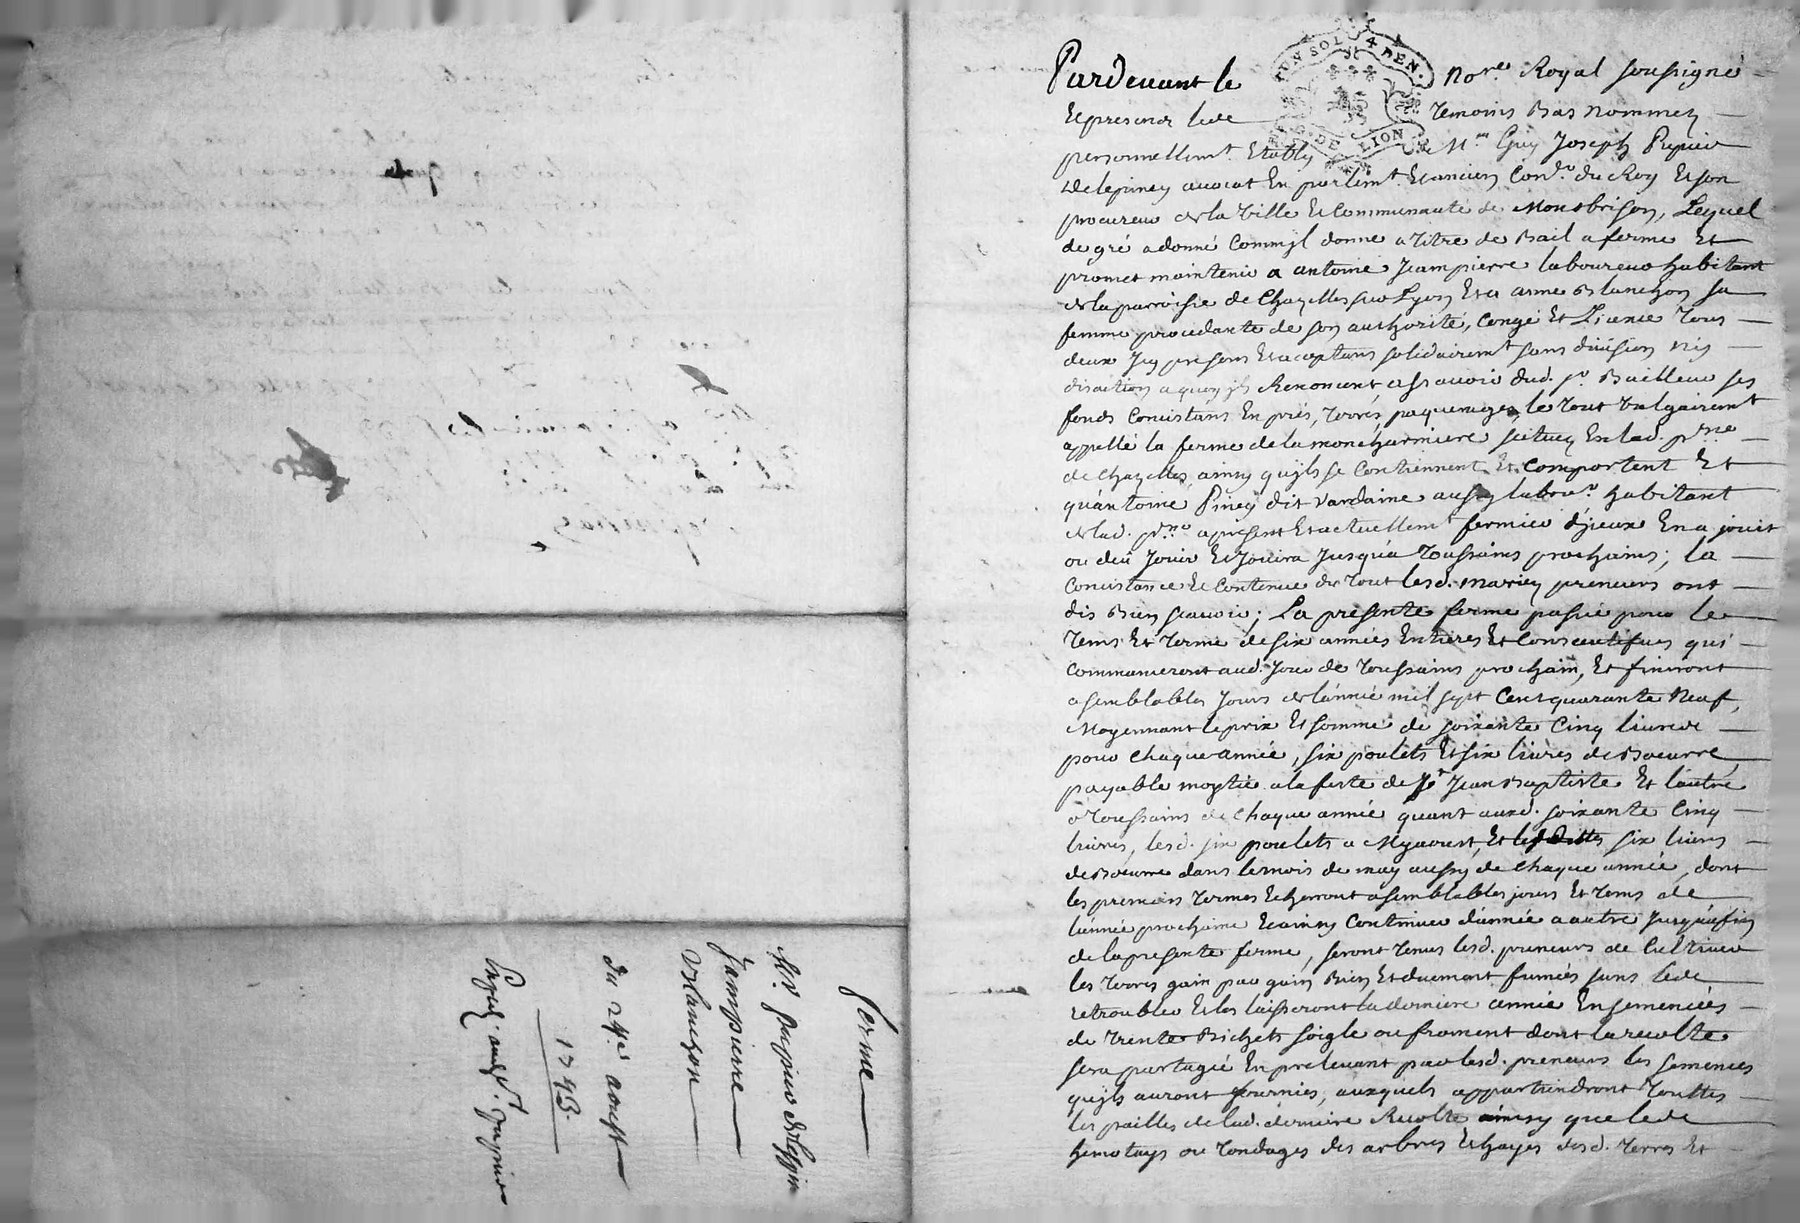 Pardevant le Nore. Royal soussigné
Et presence des Temoins Bas nommez
personnellemt. Etably Mre. Guy Joseph Pupier
delepiney avocat En parlemt. Et ancien Coner. du Roy Et son
procureur de la Ville Et Communauté de Montbrison, Lequel
de gré a donné Comm'jl donne a titre de Bail a ferme Et
promet maintenir a antoine Jeampierre laboureur habitant
de la parroisse de Chazelles sur Lyon Et a anne Blanchon sa
femme procedante de son authorité, Congé Et Licence Tous
deux Jcy presens Et acceptans solidairemt. sans division ny
disction a quoy jls Renoncent assavoir dud. sr. Bailleur ses
fonds Concistans En prés, Terres, paquerages, le Tout Vulgairemt
appellé la ferme de la moncharniere scituez En lad. psse
de Chazelles, ainsy qu'jls se Contiennent Et Comportent Et
qu'antoine Piney dit Vardaine aussy labour. habitant
de lad. psse. a present Et actuellemt. fermier d'jceux En a jouit
ou deû Jouir Et Jouira Jusqu'a Toussains prochains; la
Concistance Et Contenue de Tout lesd. mariez preneurs ont
dis Bien sçavoir; La presente ferme passée pour le
Tems Et Terme de six années Entieres Et Consecutifves qui
Commanceront aud. Jour de Toussains prochain, Et finiront
a semblables Jours de l'année mil sept Cent quarante Neuf,
Moyennant le prix Et somme de soixante Cinq livres
pour Chaque année, six poulets Et six livres de Boeurre,
payable moytié a la feste de St Jean Baptiste Et l'autre
a Toussains de Chaque année quant auxd. soixante Cinq
livres, lesd. six poulets a Myaoust, Et les dittes six livres
de Boeurre dans le mois de may aussy de Chaque année, dont
les premiers Termes Echerront a semblables jours Et Tems de
l'année prochaine Et ainsy Continuer d'année a autre Jusqu'a fin
de la presente ferme, seront Tenus lesd. preneurs de Cultiver
les Terres gain par gain Bien Et duement fumées sans les
retroubler Et les laisseront la derniere année Ensemencées
de Trente Bichets soigle ou froment dont la recolte
sera partagée En prelevant par lesd. preneurs les semences
qu'jls auront fournies, auxquels appartiendront Touttes
les pailles de lad. derniere Recolte ainsy que les
hemotays ou Tondages des arbres Et hayes desd. Terres Et
ferme
Mr. pupier delepin
Jampierre
Blanchon
du 24e aoust
1743.
UN SOL 4 DEN.
G. DE LION